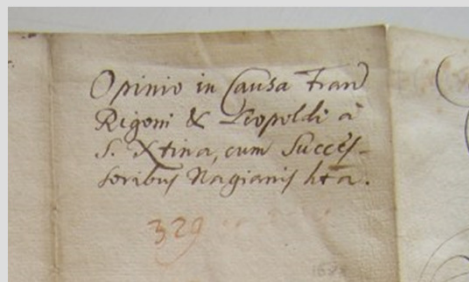 Opinio in Causa Fran
Rigoni & Leopoldi à
S. Xtina, cum Succes-
soribus Nagianis hta.
329